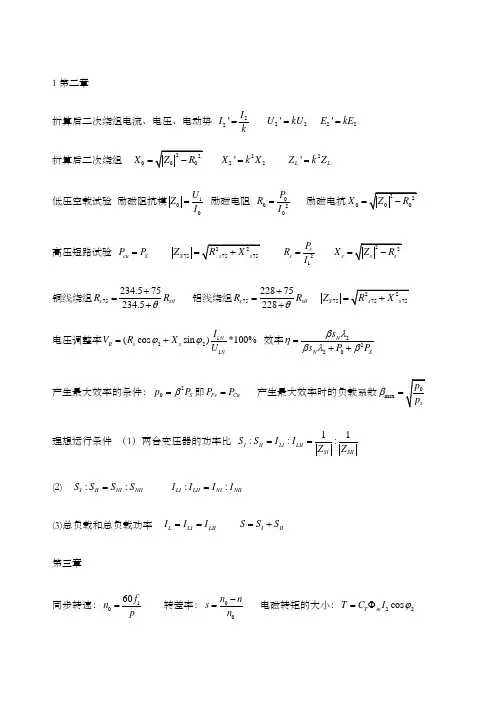 1 第二章
折算后二次绕组电流、电压、电动势 I₂' = I₂/k U₂' = kU₂ E₂' = kE₂
折算后二次绕组 X₀ = √(|Z₀|² − R₀²) X₂' = k²X₂ Z_L' = k²Z_L
低压空载试验 励磁阻抗模|Z₀| = U₁/I₀ 励磁电阻 R₀ = P₀/I₀² 励磁电抗 X₀ = √(|Z₀|² − R₀²)
高压短路试验 P_cu = P_S |Z_S75| = √(R_s75² + X²_s75) R_s = P_s/I₁² X_s = √(|Z_s|² − R_s²)
铜线绕组 R_s75 = (234.5+75)/(234.5+θ) R_sθ 铝线绕组 R_s75 = (228+75)/(228+θ) R_sθ |Z_S75| = √(R_s75² + X²_s75)
电压调整率 V_R = (R_s cos φ₂ + X_s sin φ₂) I_1N/U_1N *100% 效率 η = βs_Nλ₂/(βs_Nλ₂ + P₀ + β²P_S)
产生最大效率的条件：p₀ = β²P_S 即 P_Fe = P_Cu 产生最大效率时的负载系数 β_max = √(p₀/p_s)
理想运行条件 （1）两台变压器的功率比 S_I : S_II = I_LI : I_LII = 1/|Z_SI| : 1/|Z_SII|
⑵ S_I : S_II = S_NI : S_NII I_LI : I_LII = I_NI : I_NII
⑶总负载和总负载功率 I_L = I_LI = I_LII S = S_I + S_II
第三章
同步转速：n₀ = 60f₁/p 转差率：s = (n₀ − n)/n₀ 电磁转矩的大小：T = C_TΦ_m I₂ cos φ₂